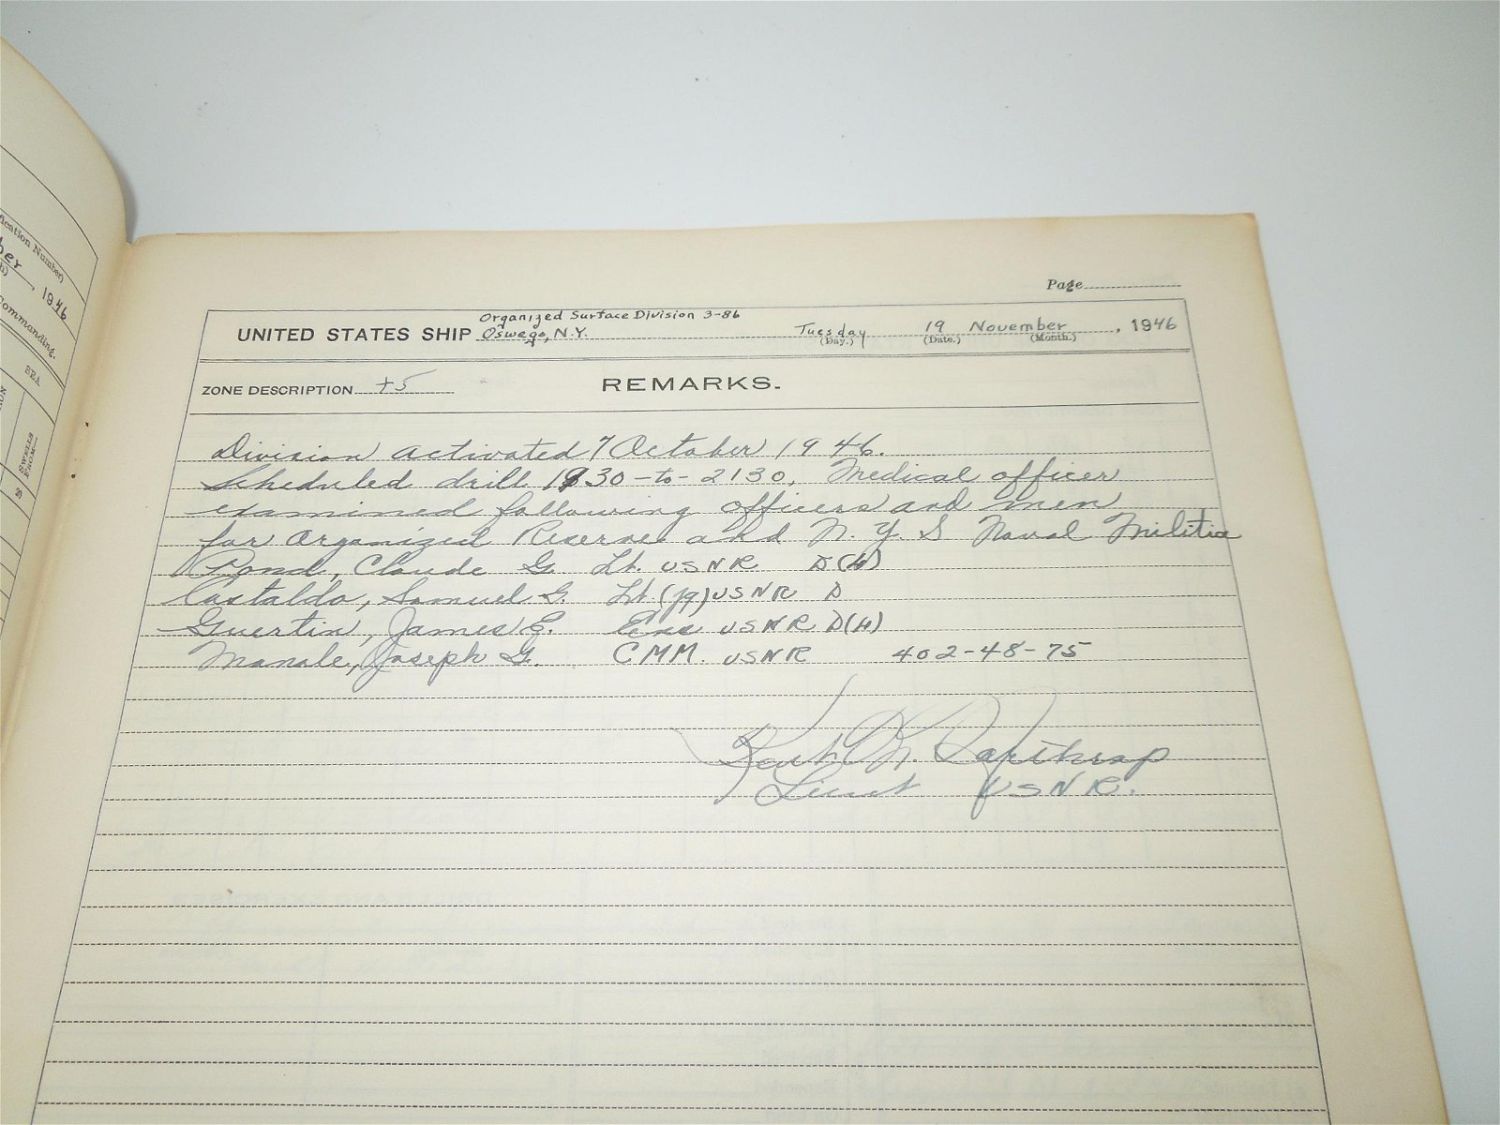 ication Number)
ber
, 1946
Commanding.
SEA
SWELLS FROM—
20
Page
Organized Surface Division 3-86
UNITED STATES SHIP Oswego, N.Y. Tuesday 19 November , 1946
(Day.) (Date.) (Month.)
ZONE DESCRIPTION +5 REMARKS.
Division activated 7 October 1946.
Scheduled drill 1930-to-2130. Medical officer
examined following officers and men
for Organized Reserve and N.Y.S Naval Militia
Pond, Claude G. Lt. USNR D(H)
Castaldo, Samuel G. Lt.(jg) USNR D
Guertin, James E. Ens USNR D(H)
Manale, Joseph G. CMM. USNR 402-48-75
Lieut USNR.